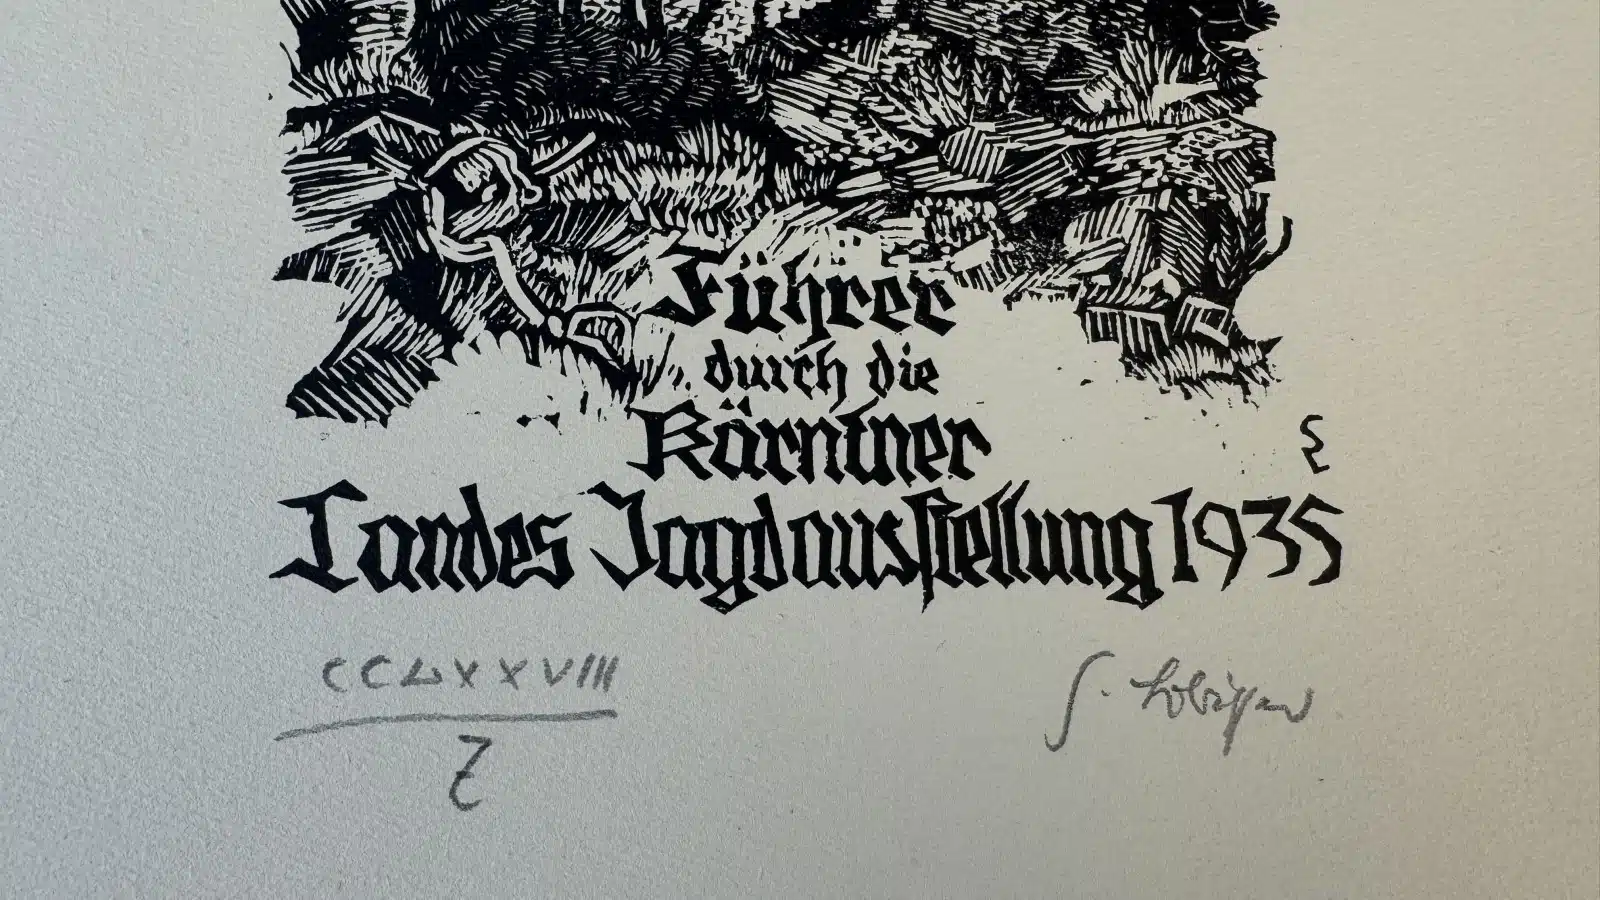 Führer
durch die
Kärntner
Landes Jagdausstellung 1935
CCLXXVIII
S. Lobisser